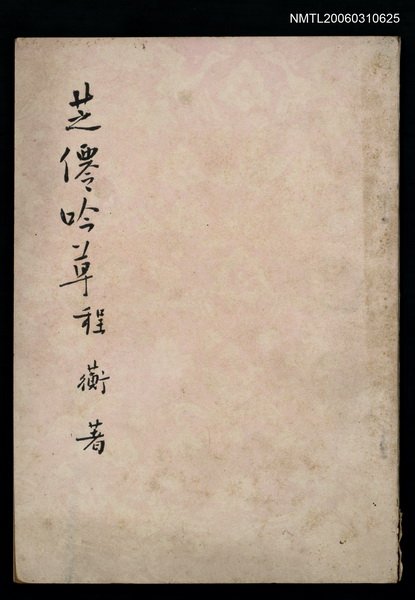 NMTL20060310625
芝僊吟草程衡著